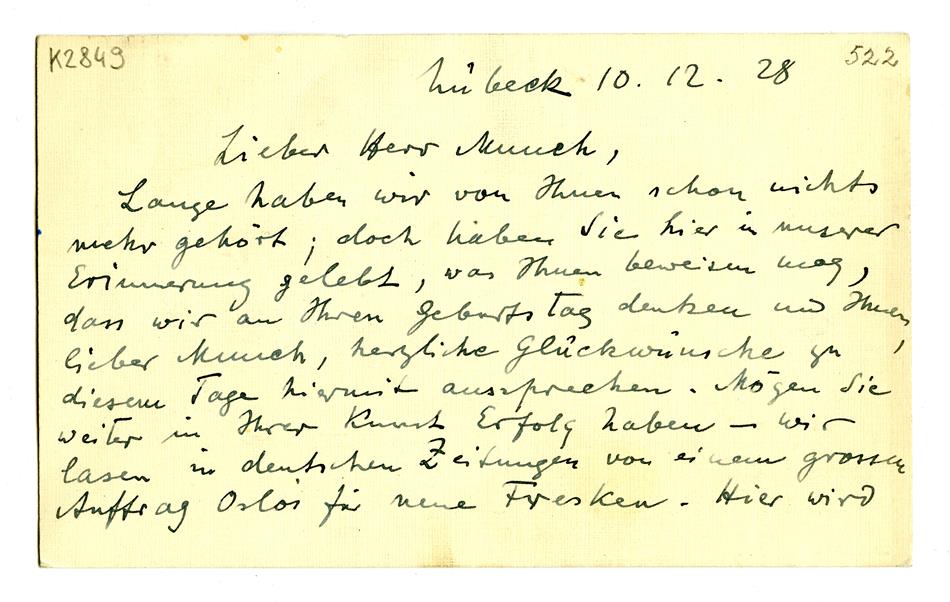 K2849
522
Lübeck 10. 12. 28
Lieber Herr Munch,
Lange haben wir von Ihnen schon nichts
mehr gehört; doch haben Sie hier in unserer
Erinnerung gelebt, was Ihnen beweisen mag,
dass wir an Ihren Geburtstag denken und Ihnen,
lieber Munch, herzliche Glückwünsche zu
diesem Tage hiermit aussprechen. Mögen Sie
weiter in Ihrer Kunst Erfolg haben – wir
lasen in deutschen Zeitungen von einem grossen
Auftrag Oslos für neue Fresken. Hier wird